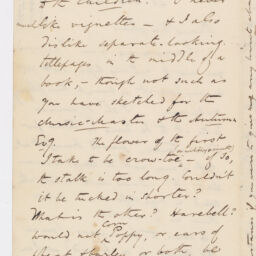 to the children. I never
like vignettes – & I also
dislike separate-looking
titlepages in the middle of a
book, – though not such as
you have sketched for the
Music-Master & the Autumn
Evg. The flower of the first
I take to be crow-toe – if so,
the stalk is too long. Couldn't
it be tucked in shorter?
What is the other? Harebell?
would not Corn Poppy, or ears of
wheat or barley or both, be